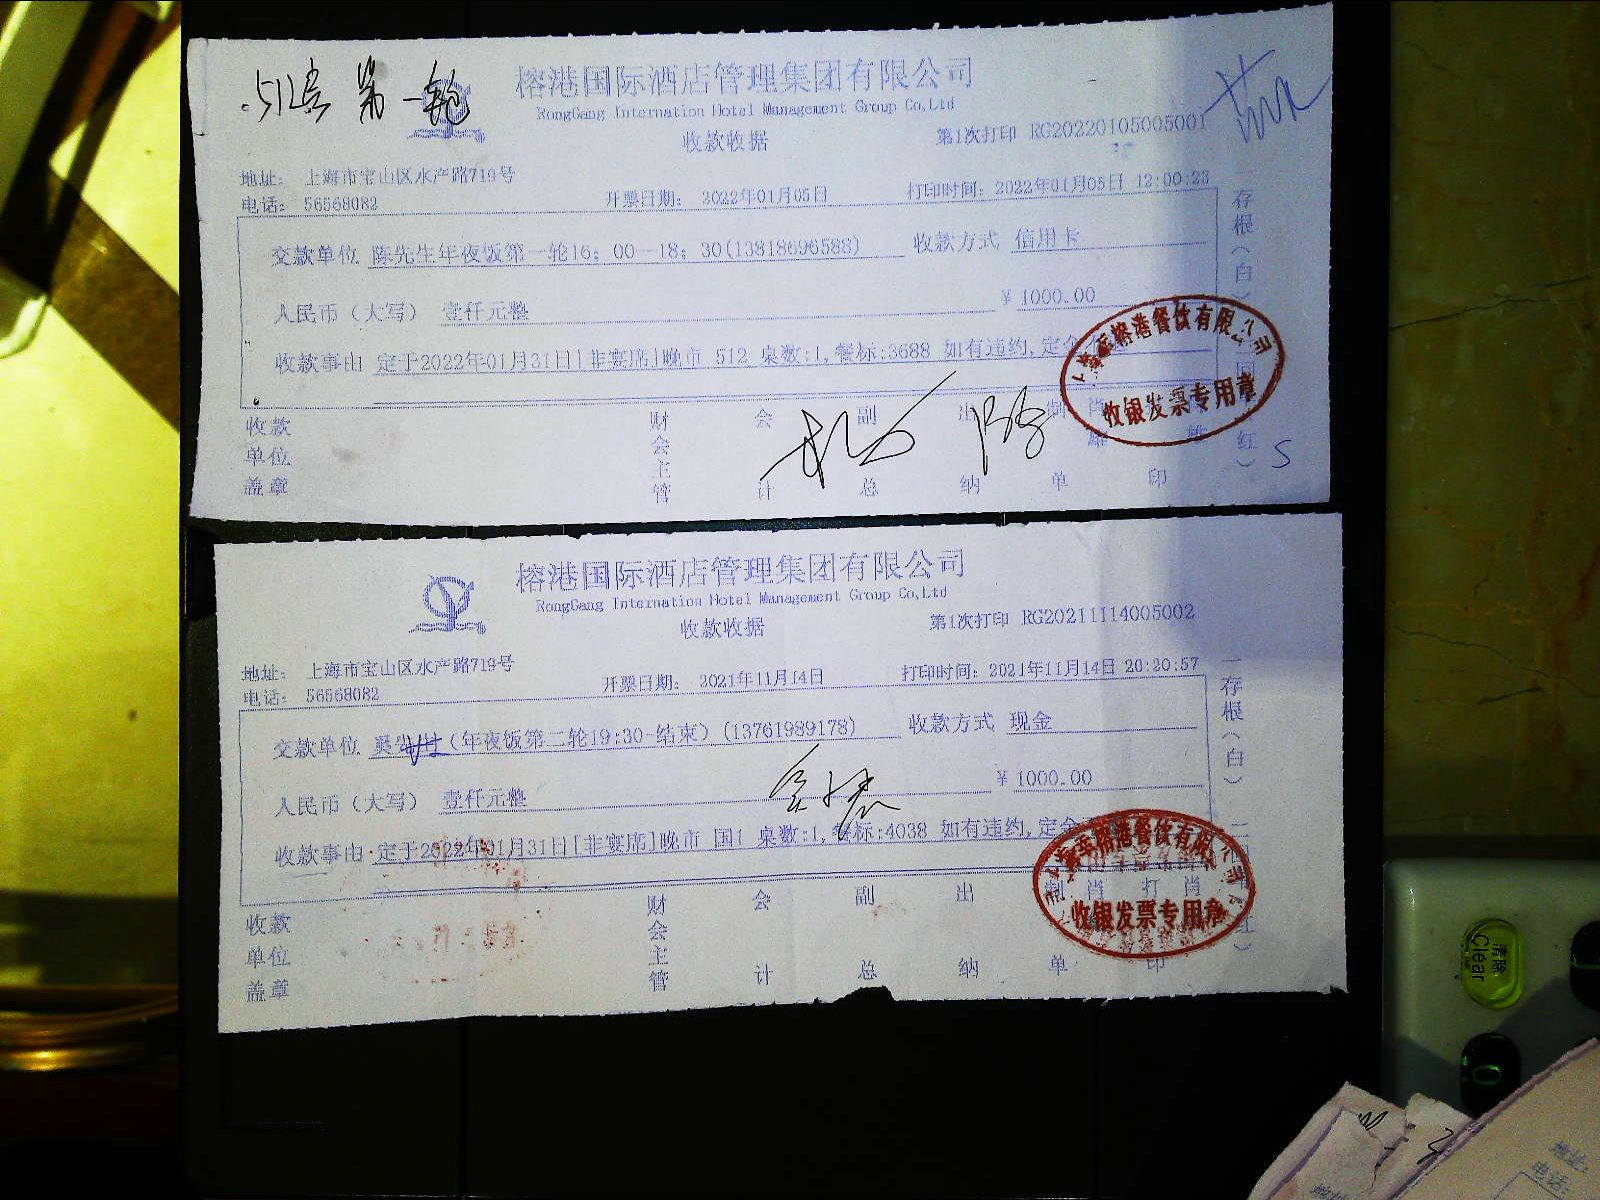 512房 第一轮
榕港国际酒店管理集团有限公司
RongGang Internation Hotel Management Group Co,Ltd
收款收据
第1次打印 RG20220105005001
地址： 上海市宝山区水产路719号
电话： 56568082
开票日期： 2022年01月05日
打印时间：2022年01月05日 12:00:23
交款单位 陈先生年夜饭第一轮16：00—18：30(13818696588)
收款方式 信用卡
人民币（大写） 壹仟元整
¥ 1000.00
收款事由 定于2022年01月31日[非宴席]晚市 512 桌数:1,餐标:3688 如有违约,定金
收银发票专用章
收款单位盖章
财会主管
会计
副总
出纳
制单
印
存根（白）
红）
榕港国际酒店管理集团有限公司
RongGang Internation Hotel Management Group Co,Ltd
收款收据
第1次打印 RG20211114005002
地址： 上海市宝山区水产路719号
电话： 56568082
开票日期： 2021年11月14日
打印时间：2021年11月14日 20:20:57
交款单位 (年夜饭第二轮19:30-结束) (13761989178)
收款方式 现金
人民币（大写） 壹仟元整
¥ 1000.00
收款事由 定于2022年01月31日[非宴席]晚市 国1 桌数:1,餐标:4038 如有违约,定金
收银发票专用章
收款单位盖章
财会主管
会计
副总
出纳
制单
打印
存根（白）
红）
清除
Clear
0
地址:
电话: